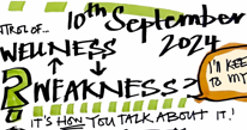 10th September
2024
NTROL OF...
WELLNESS
↑ ↓
? WEAKNESS?
I'M KEE
TO MY
IT'S HOW YOU TALK ABOUT IT!